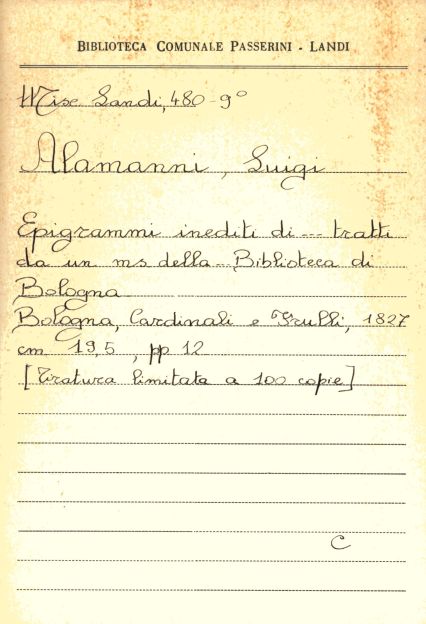 BIBLIOTECA COMUNALE PASSERINI - LANDI
Misc Landi, 480-9°
Alamanni, Luigi
Epigrammi inediti di --- tratti
da un ms della -- Biblioteca di
Bologna
Bologna, Cardinali e Frulli, 1827
cm 19,5, pp 12
[Tiratura limitata a 100 copie]
C